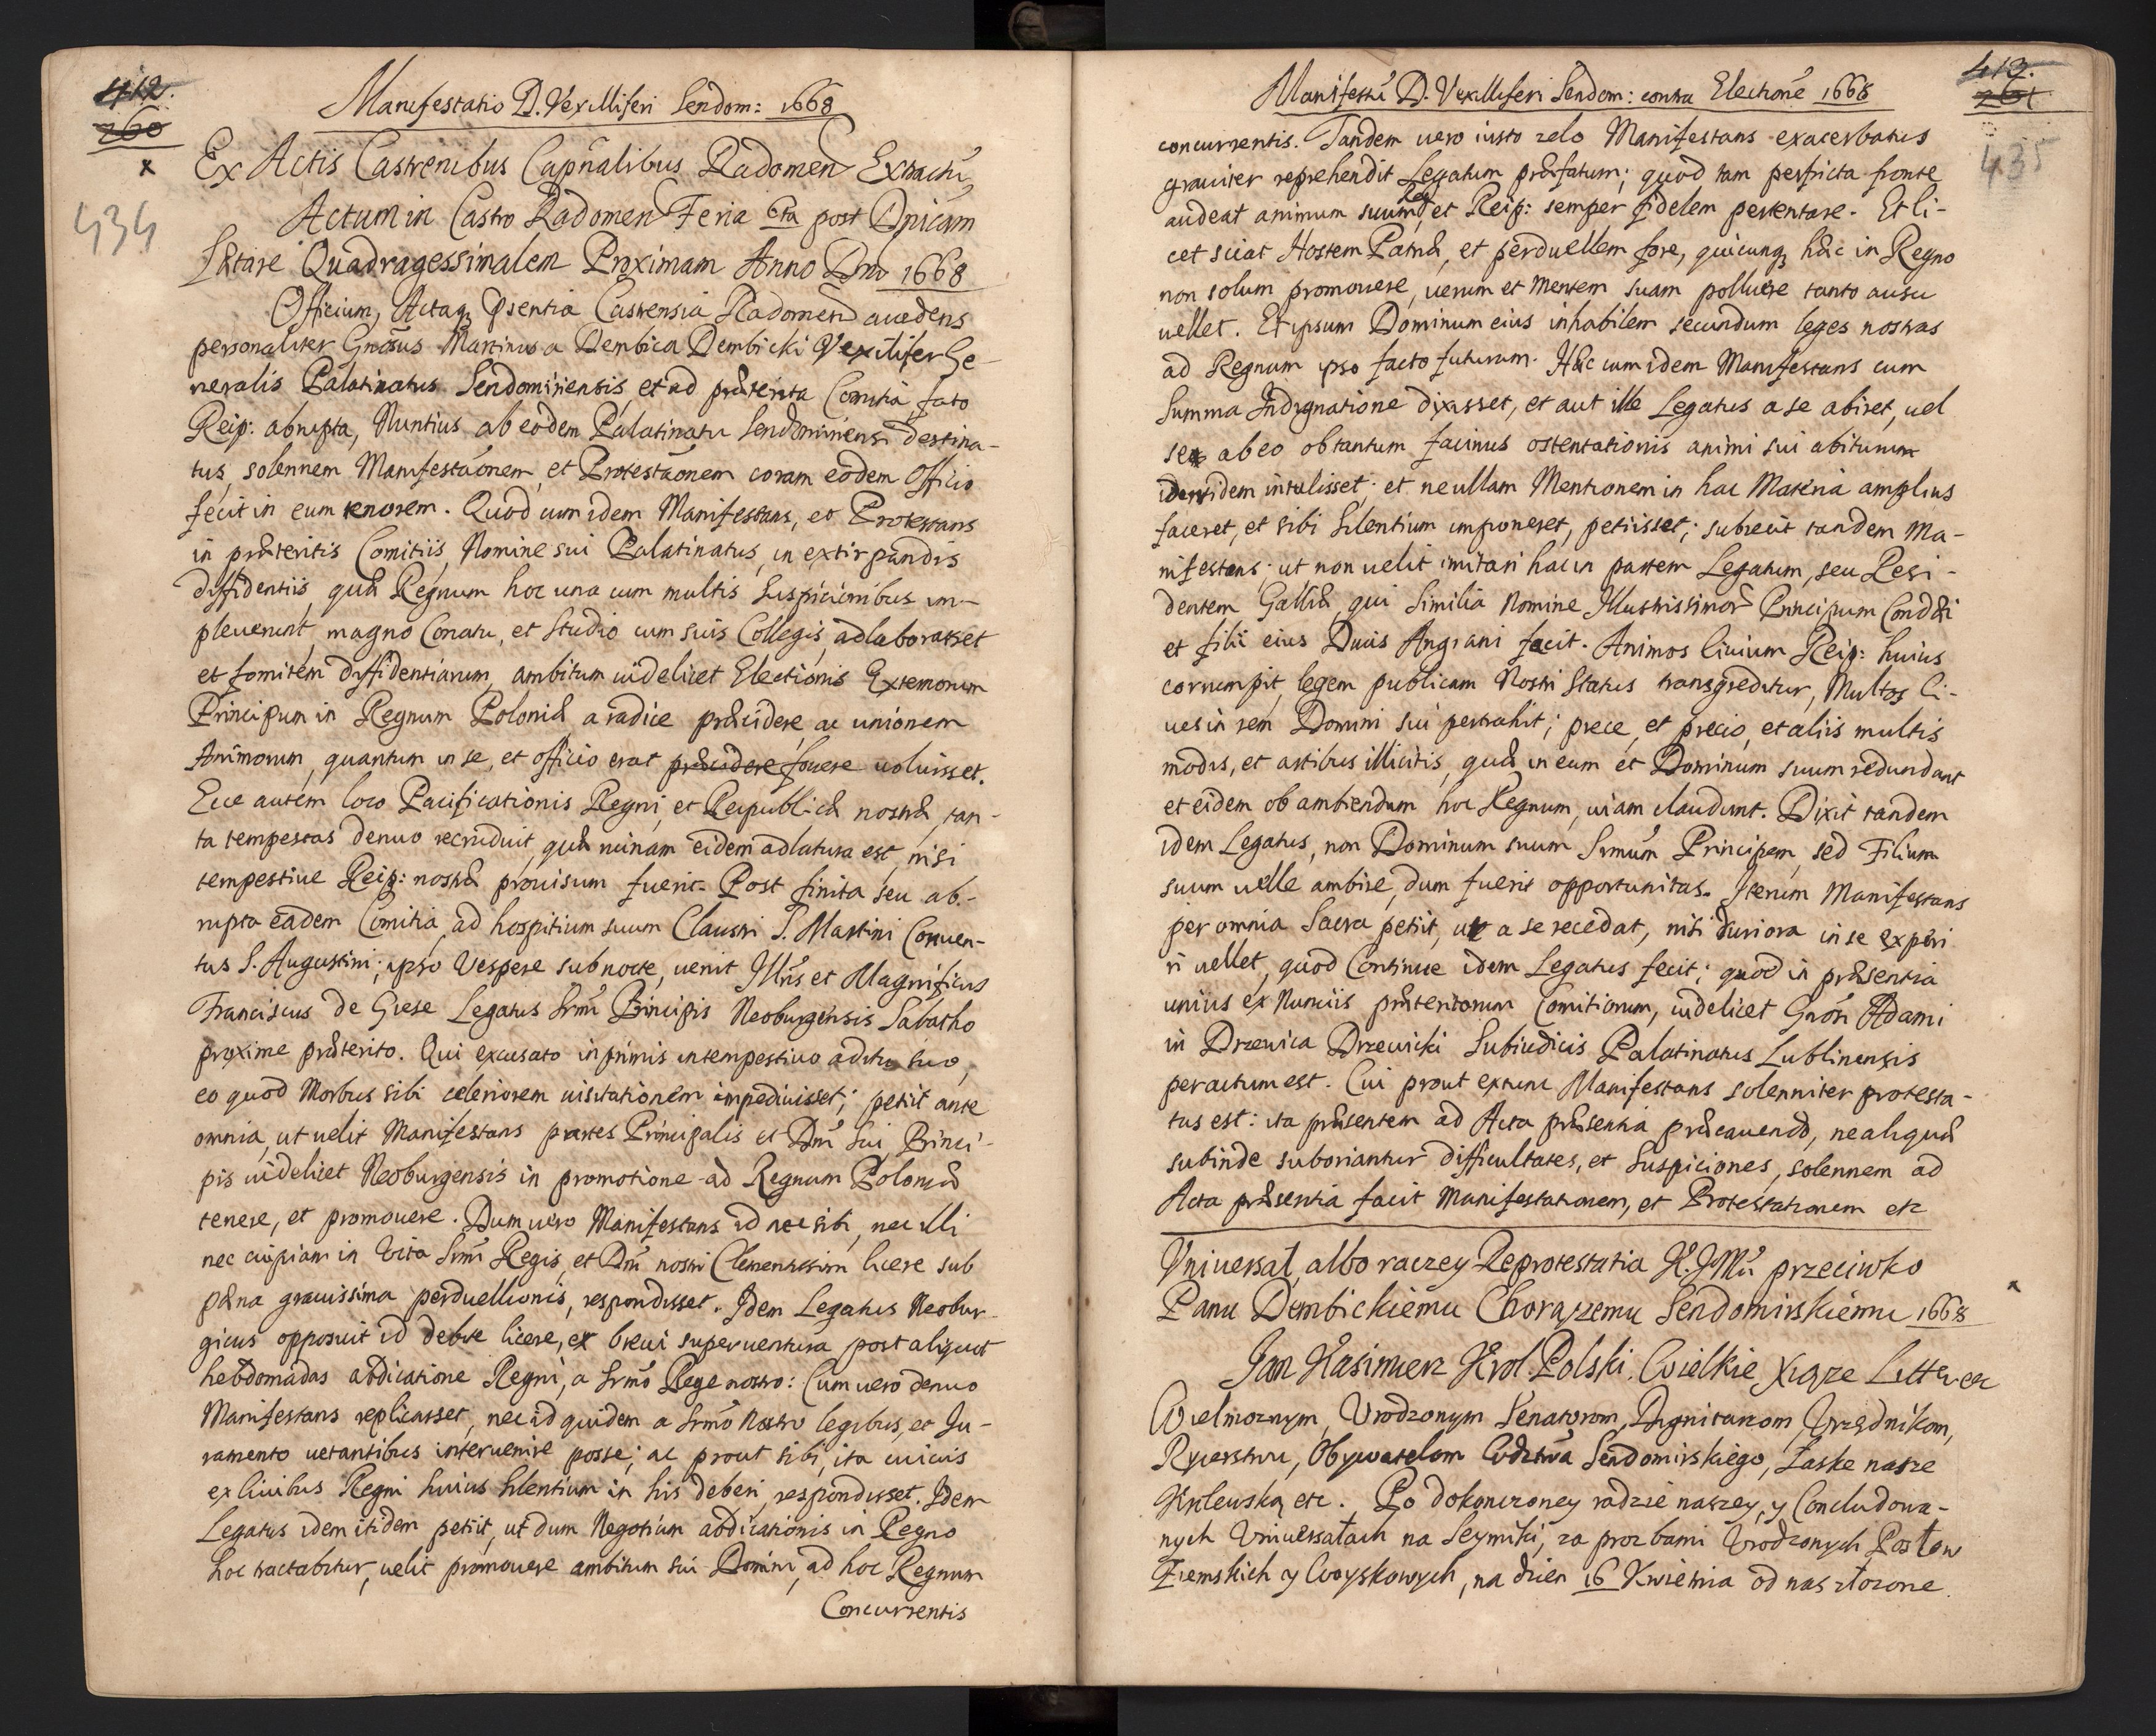 412.
260
x
434
Manifestatio D. Vexilliferi Sendom: 1668
Ex Actis Castrensibus Capitalibus Radomen Extractū
Actum in Castro Radomen Feria 6ta post Dnicam
Lætare Quadragessimalem Proximam Anno Dni 1668
Officium, Actaq; psentia Castrensia Radomen accedens
personaliter Gnōsus Martinus a Dembica Dembicki Vexilifer Ge-
neralis Palatinatus Sendomiriensis, et ad præterita Comitia, fato
Reip: abrupta, Nuntius ab eodem Palatinatu Sendomiriensi destina-
tus, solennem Manifestāonem, et Protestāonem coram eodem Officio
fecit in eum tenorem. Quod cum idem Manifestans, et Protestans
in præteritis Comitiis, Nomine sui Palatinatus, in extirpandis
diffidentiis, quæ Regnum hoc una cum multis Suspicionibus im-
pleverunt, magno Conatu, et Studio cum suis Collegis, adlaborasset
et fomitem diffidentiarum, ambitum videlicet Electionis Externorum
Principum in Regnum Poloniæ a radice præcidere, ac unionem
Animorum, quantum in se, et officio erat præcidere fovere voluisset.
Ecce autem loco Pacificationis Regni, et Reipublicæ nostræ, tan-
ta tempestas denuo recruduit, quæ ruinam eidem adlatura est, nisi
tempestive Reip: nostræ provisum fuerit. Post finita seu ab-
rupta eadem Comitia, ad hospitium suum Claustri S. Martini Conven-
tus S. Augustini; ipso Vespere sub nocte, venit Illris et Magnificus
Franciscus de Giese Legatus Srmi Principis Neoburgensis Sabatho
proxime præterito. Qui excusato inprimis intempestivo aditu suo,
eo quod Morbus sibi celeriorem visitationem impedivisset; petiit ante
omnia, ut velit Manifestans partes Principalis et Dni Sui, Princi-
pis videlicet Neoburgensis in promotione ad Regnum Poloniæ
tenere, et promovere. Dum vero Manifestans id nec sibi, nec illi
nec cuipiam in Vita Srmi Regis, et Dni nostri Clementissimi licere sub
pæna gravissima perduellionis, respondisset. Idem Legatus Neobur-
gicus opposuit id debere licere, ex brevi superventura post aliquot
hebdomadas abdicatione Regni, a Srmo Rege nostro: Cum vero denuo
Manifestans replicasset, nec id quidem a Srmo Nostro legibus, et Ju-
ramento vetantibus intervenire posse; ac prout sibi, ita cuicuis
ex Civibus Regni huius Silentium in his deberi, respondisset. Idem
Legatus idem itidem petiit, ut dum Negotium abdicationis in Regno
hoc tractabitur, velit promovere ambitum sui Domini, ad hoc Regnum
Concurrentis
413.
261
435
Manifestū D. Vexilliferi Sendom: contra Electionē 1668
concurrentis. Tandem vero iusto zelo Manifestans exacerbatus
graviter reprehendit Legatum præfatum; quod tam perfricta fronte
audeat animum suum Regi et Reip: semper fidelem pertentare. Et li-
cet sciat Hostem Patriæ, et perduellem fore, quicunq; hæc in Regno
non solum promovere, verum et Mentem suam polluere tanto ausu
vellet. Et ipsum Dominum eius inhabilem secundum leges nostras
ad Regnum ipso facto futurum. Hæc cum idem Manifestans cum
Summa Indignatione dixisset, et aut ille Legatus a se abiret, vel
se ab eo ob tantum facinus ostentationis animi sui abiturum
identidem intulisset; et ne ullam Mentionem in hac Materia amplius
faceret, et sibi Silentium imponeret, petiisset; subiecit tandem Ma-
nifestans; ut non velit imitari hac in partem Legatum, seu Resi-
dentem Galliæ, qui Similia Nomine Illustrissimor Principum Condæi
et filii eius Ducis Angviani facit. Animos Civium Reip: huius
corrumpit, legem publicam Nostri Status transgreditur, Multos Ci-
ves in rem Domini sui pertrahit; prece, et precio, et aliis multis
modis, et artibus illicitis, quæ in eum et Dominum suum redundant
et eidem ob ambiendum hoc Regnum, viam claudunt. Dixit tandem
idem Legatus, non Dominum suum Srmum Principem, sed Filium
suum velle ambire, dum fuerit opportunitas. Iterum Manifestans
per omnia Sacra petiit, ut a se recedat, nisi duriora in se experi
ri vellet, quod Continue idem Legatus fecit; quod in præsentia
unius ex Nunciis præteritorum Comitiorum, videlicet Gnōsi Adami
in Drzewica Drzewicki Subiudicis Palatinatus Lublinensis
peractum est. Cui prout extunc Manifestans solenniter protesta-
tus est: ita præsentem ad Acta præsentia præcavendo, ne aliquæ
subinde suboriantur difficultates, et Suspiciones, solennem ad
Acta præsentia facit Manifestationem, et Protestationem etc
Vniversał, albo raczey Reprotestatia K. JMci przeciwko
Panu Dembickiemu Chorążemu Sendomirskiemu 1668
Jan Kasimierz Krol Polski, Wielkie Xiąze Litt. etc
Wielmoznym, Vrodzonym Senatorom, Dignitarzom, Vrzędnikom,
Rycerstwu, Obywatelom Wdztwa Sendomirskiego, Łaskę nasze
Krolewską etc. Po dokonczoney radzie naszey, y Concludowa-
nych Vniwersałach na Seymiki, za prozbami Vrodzonych Posłow
Ziemskich y Woyskowych, na dzien 16 Kwietnia od nas złozone